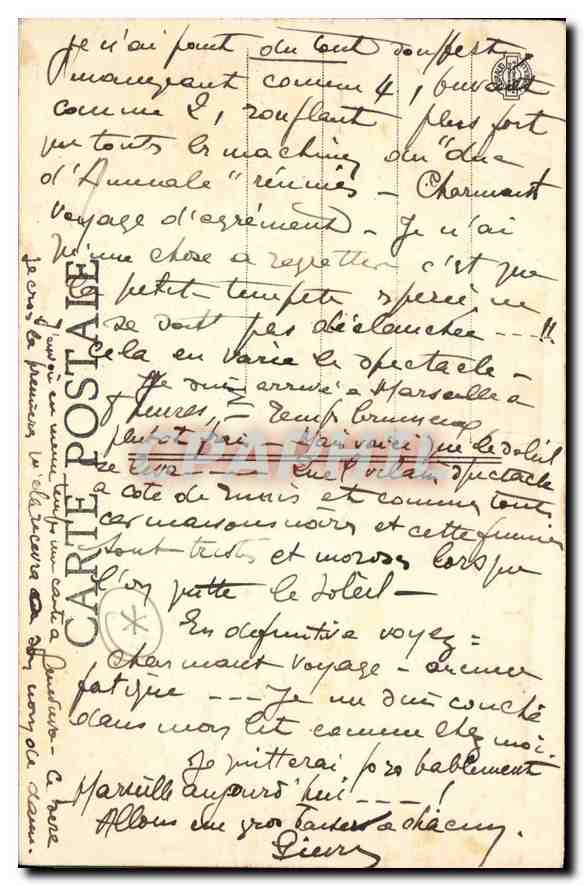 Je n'ai point du tout souffert
mangeant comme 4, buvant
comme 2, ronflant plus fort
que toutes les machines du "duc
d'Aumale" réunies - Charmant
voyage d'agrément - Je n'ai
qu'une chose à regretter c'est que
la petite tempête espérée ne
se soit pas déclanchée ---!!
cela en varie le spectacle -
Je suis arrivé à Marseille à
heures, - Temps brumeux
plutôt frais, - Mais voici que le soleil
se leva -- Quel vilain spectacle
à côté de Tunis et comme toutes
ces maisons noires et cette fumée
sont tristes et moroses lorsque
l'on quitte le soleil -
En définitive voyez =
charmant voyage - aucune
fatigue --- Je me suis couché
dans mon lit comme chez moi.
Je quitterai probablement
Marseille aujourd'hui ---!
Allons un gros baiser à chacun.
Pierre
CARTE POSTALE
J'envoie en même temps une carte à - Ce sera
je crois la première qu'elle recevra à son nom de dame.
CPAPHIL